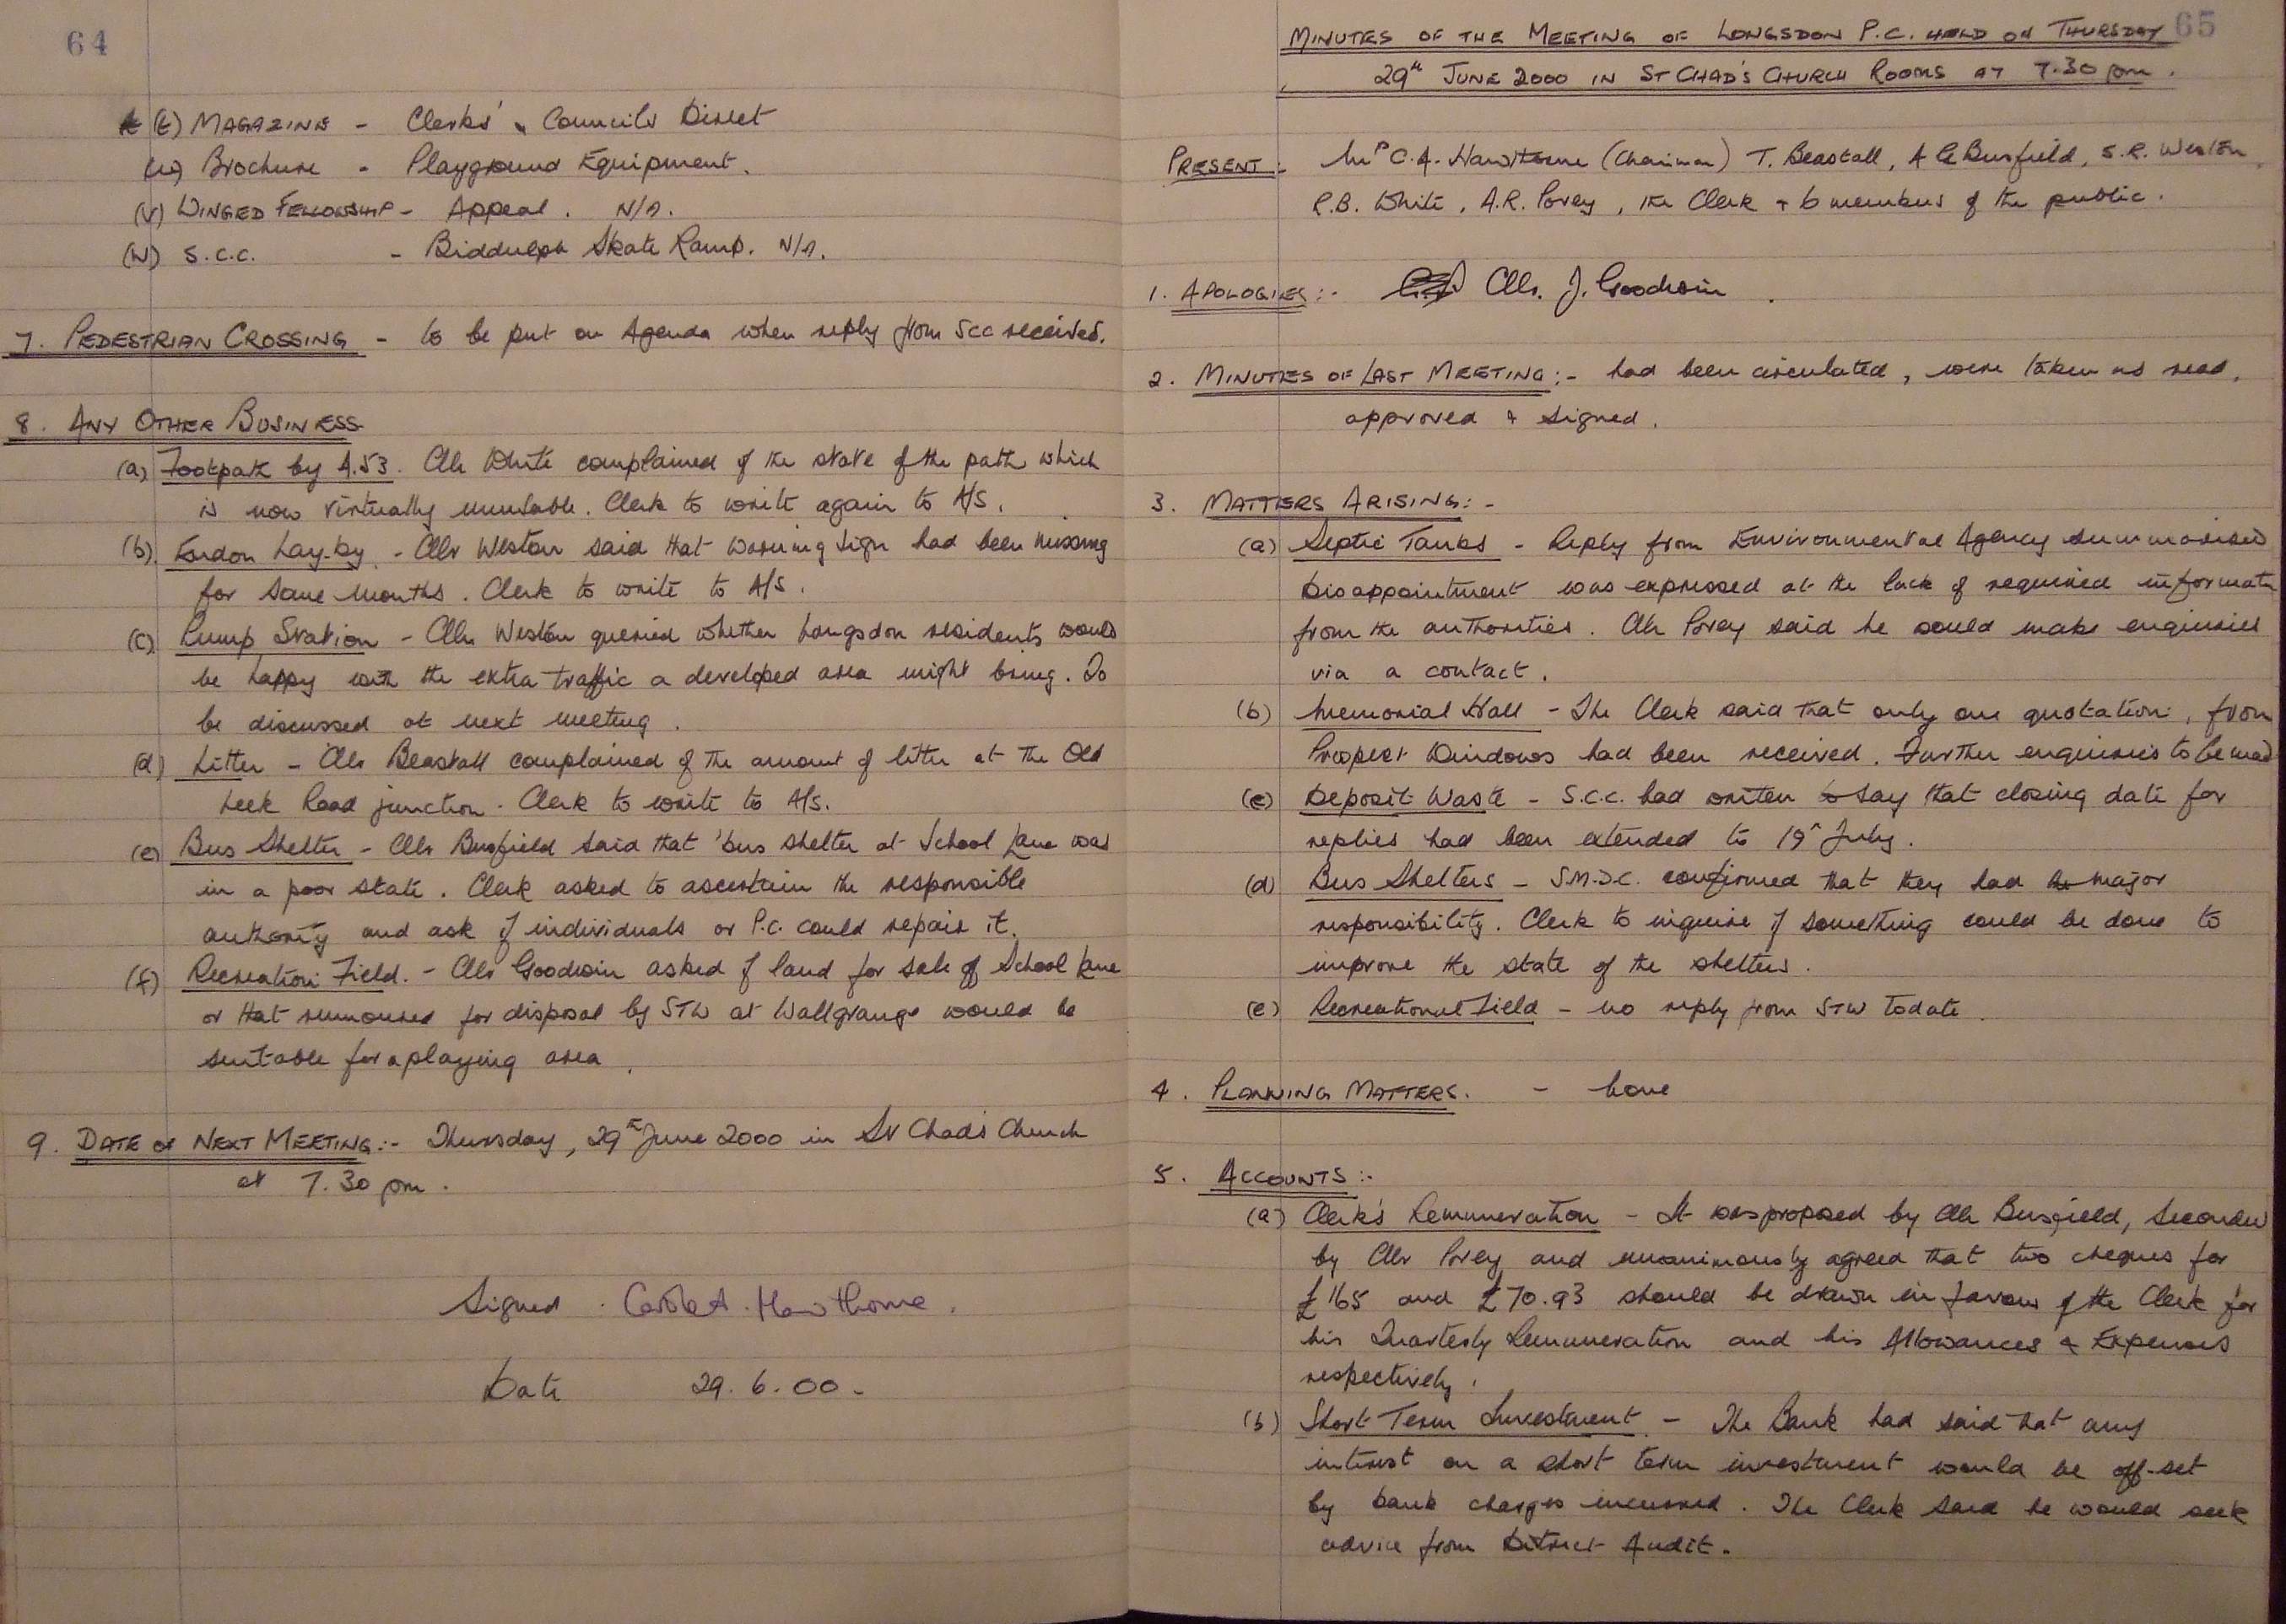 64
(t) MAGAZINE - Clerks' & Councils Direct
(u) Brochure - Playground Equipment.
(v) WINGED FELLOWSHIP - Appeal. N/A.
(w) S.C.C. - Biddulph Skate Ramp. N/A.
7. PEDESTRIAN CROSSING - to be put on Agenda when reply from SCC received.
8. ANY OTHER BUSINESS
(a) Footpath by A.53. Cllr White complained of the state of the path which
is now virtually unusable. Clerk to write again to H/S.
(b) Endon Lay-by. - Cllr Weston said that warning sign had been missing
for some months. Clerk to write to H/S.
(c) Pump Station - Cllr Weston queried whether Longsdon residents would
be happy with the extra traffic a developed area might bring. To
be discussed at next meeting.
(d) Litter - Cllr Beastall complained of the amount of litter at the Old
Leek Road junction. Clerk to write to H/S.
(e) Bus Shelter - Cllr Busfield said that 'bus shelter at School Lane was
in a poor state. Clerk asked to ascertain the responsible
authority and ask if individuals or P.C. could repair it.
(f) Recreation Field. - Cllr Goodwin asked if land for sale off School Lane
or that rumoured for disposal by STW at Wallgrange would be
suitable for a playing area.
9. DATE OF NEXT MEETING:- Thursday, 29th June 2000 in St Chad's Church
at 7.30 pm.
Signed. Carole A. Hawthorne.
Date 29.6.00.
65
MINUTES OF THE MEETING OF LONGSDON P.C. HELD ON THURSDAY
29th JUNE 2000 IN ST CHAD'S CHURCH ROOMS AT 7.30 pm.
PRESENT:- Mrs C.A. Hawthorne (Chairman) T. Beastall, A G Busfield, S.R. Weston,
R.B. White, A.R. Povey, the Clerk + 6 members of the public.
1. APOLOGIES:- Cllr. J. Goodwin.
2. MINUTES OF LAST MEETING:- had been circulated, were taken as read,
approved & signed.
3. MATTERS ARISING:-
(a) Septic Tanks - Reply from Environmental Agency summarised
Disappointment was expressed at the lack of required informatn
from the authorities. Cllr Povey said he would make enquiries
via a contact.
(b) Memorial Hall - The Clerk said that only one quotation, from
Prospect Windows had been received. Further enquiries to be mad
(c) Deposit Waste - S.C.C. had written to say that closing date for
replies had been extended to 19th July.
(d) Bus Shelters - S.M.D.C. confirmed that they had major
responsibility. Clerk to inquire if something could be done to
improve the state of the shelters.
(e) Recreational Field - no reply from STW to date.
4. PLANNING MATTERS. - None
5. ACCOUNTS:-
(a) Clerk's Remuneration - It was proposed by Cllr Busfield, Seconded
by Cllr Povey and unanimously agreed that two cheques for
£165 and £70.93 should be drawn in favour of the Clerk for
his Quarterly Remuneration and his Allowances & Expenses
respectively.
(b) Short Term Investment. - The Bank had said that any
interest on a short term investment would be off-set
by bank charges incurred. The Clerk said he would seek
advice from District Audit.